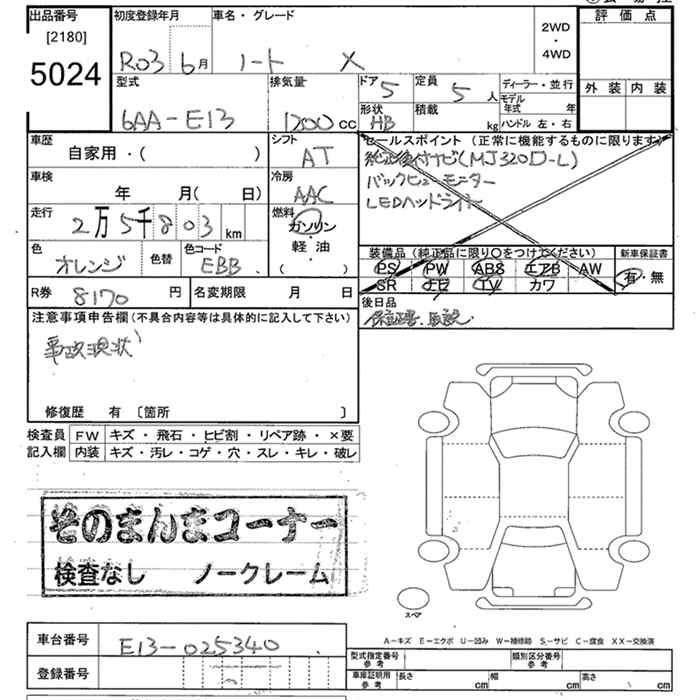 出品番号 初度登録年月 車名・グレード 2WD ・ 4WD 評価点
[2180]
5024
R03 6月 ノート X
型式 排気量 ドア 5 定員 5人 ディーラー・並行 外装 内装
6AA-E13 1200cc 形状 HB 積載 kg モデル年式 年
ハンドル 左・右
車歴 シフト セールスポイント (正常に機能するものに限ります)
自家用・( ) AT 純正後付ナビ(MJ320D-L)
車検 冷房 バックビューモニター
年 月( 日) AAC LEDヘッドライト
走行 2万5千803km 燃料 ガソリン・軽油・( )
色 オレンジ 色替 色コード EBB
装備品 (純正品に限り〇をつけてください) 新車保証書
PS PW ABS エアB AW 有・無
SR ナビ TV カワ
R券 8170円 名変期限 月 日
後日品
保証書、取説
注意事項申告欄 (不具合内容等は具体的に記入して下さい)
事故現状
修復歴 有 〔箇所 〕
検査員 FW キズ・飛石・ヒビ割・リペア跡・×要
記入欄 内装 キズ・汚レ・コゲ・穴・スレ・キレ・破レ
そのまんまコーナー
検査なし ノークレーム
スペア
A-キズ E-エクボ U-凹み W-補修跡 S-サビ C-腐食 XX-交換済
車台番号 E13-025340
型式指定番号 参考 類別区分番号 参考
登録番号
車庫証明用 参考 長さ cm 幅 cm 高さ cm